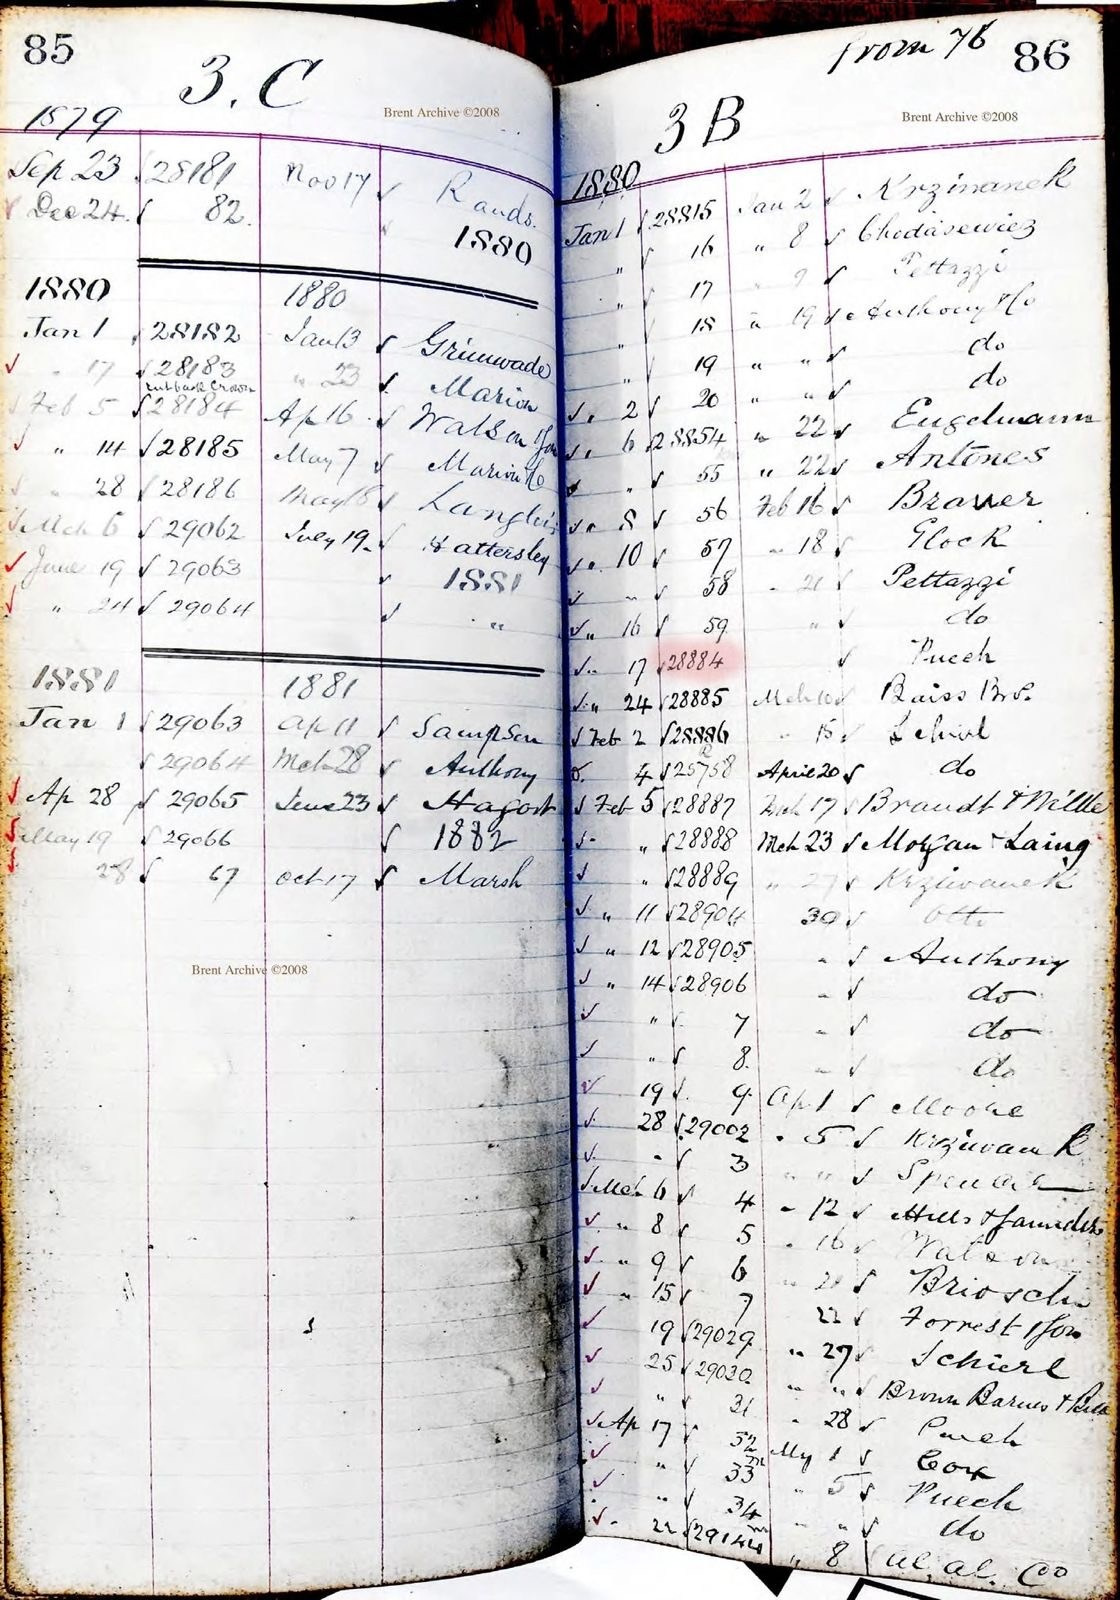 85
3.C
Brent Archive ©2008
1879
Sep 23 28181 Nov 17 Rands.
Dec 24. 82.
1880
1880 1880
Jan 1 28182 Jan 13 Grimwade
" 17 28183 " 23 Marion
Feb 5 28184 Ap 16 Watson & Son
" 14 28185 May 7 Marion & Co
" 28 28186 May 18
Mch 6 29062 July 19 Hattersley
June 19 29063 1881
" 24 29064 "
1881 1881
Jan 1 29063 Ap 11 Sampson
29064 Mch 28 Anthony
Ap 28 29065 June 23
May 19 29066 1882
28 67 Oct 17 Marsh
Brent Archive ©2008
from 76 86
3 B
Brent Archive ©2008
1880
Jan 1 28815 Jan 2 Krziwanek
" 16 " 8 Chodasewiez
" 17 " 9 Pettazzi
" 18 " 19 Anthony & Co
" 19 " " do
" 2 20 " " do
" 6 28854 " 22 Engelmann
" 55 " 22 Antones
" 8 56 Feb 16 Brauer
" 10 57 " 18 Glock
" 58 " 21 Pettazzi
" 16 59 " do
" 17 28884 Puech
" 24 28885 Mch 10 Baiss Bros.
Feb 2 28886 " 15 Schierl
4 25758 April 20 do
Feb 5 28887 Mch 17 Brandt & Wilde
" 28888 Mch 23 Morgan & Laing
" 28889 " 27 Krziwanek
" 11 28904 30 Otto
" 12 28905 " Anthony
" 14 28906 " do
" 7 " do
" 8. " do
19 9 Ap 1 Moore
28 29002 " 5 Krziwanek
" 3 " "
Mch 6 4 " 12 Hills & Saunders
" 8 5 " 16 Watson
" 9 6 " 20 Brioschi
" 15 7 22 Forrest & Son
19 29029 " 27 Schierl
25 29030 " " Brown Barnes & Bell
" 31 " 28 Puech
Ap 17 32 My 1 Cox
" 33 " 5 Puech
" 34 " " do
" 22 29144 " 8 al. al. Co